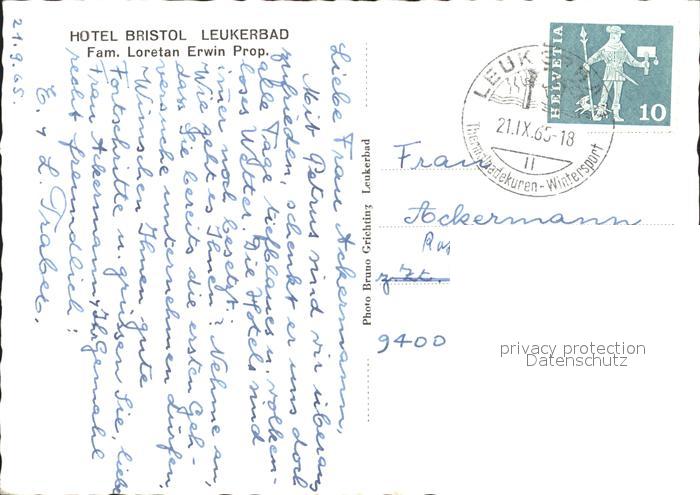 HOTEL BRISTOL LEUKERBAD
Fam. Loretan Erwin Prop.
21.9.65.
Liebe Frau Ackermann,
Mit Petrus sind wir überaus
zufrieden, schenkt er uns doch
alle Tage tiefblaues u. wolken-
loses Wetter. Die Hotels sind
immer noch besetzt.
Wie geht es Ihnen? Nehme an,
dass Sie bereits die ersten Geh-
versuche unternehmen dürfen.
Wünschen Ihnen gute
Fortschritte u. grüssen Sie, liebe
Frau Ackermann u. Ihr Gemahl
recht freundlich:
E. & L. Traber.
Photo Bruno Grichting Leukerbad
HELVETIA
10
LEUK
21.IX.65-18
11
Thermalbadekuren - Wintersport
Frau
Ackermann
z. Zt.
9400
privacy protection
Datenschutz